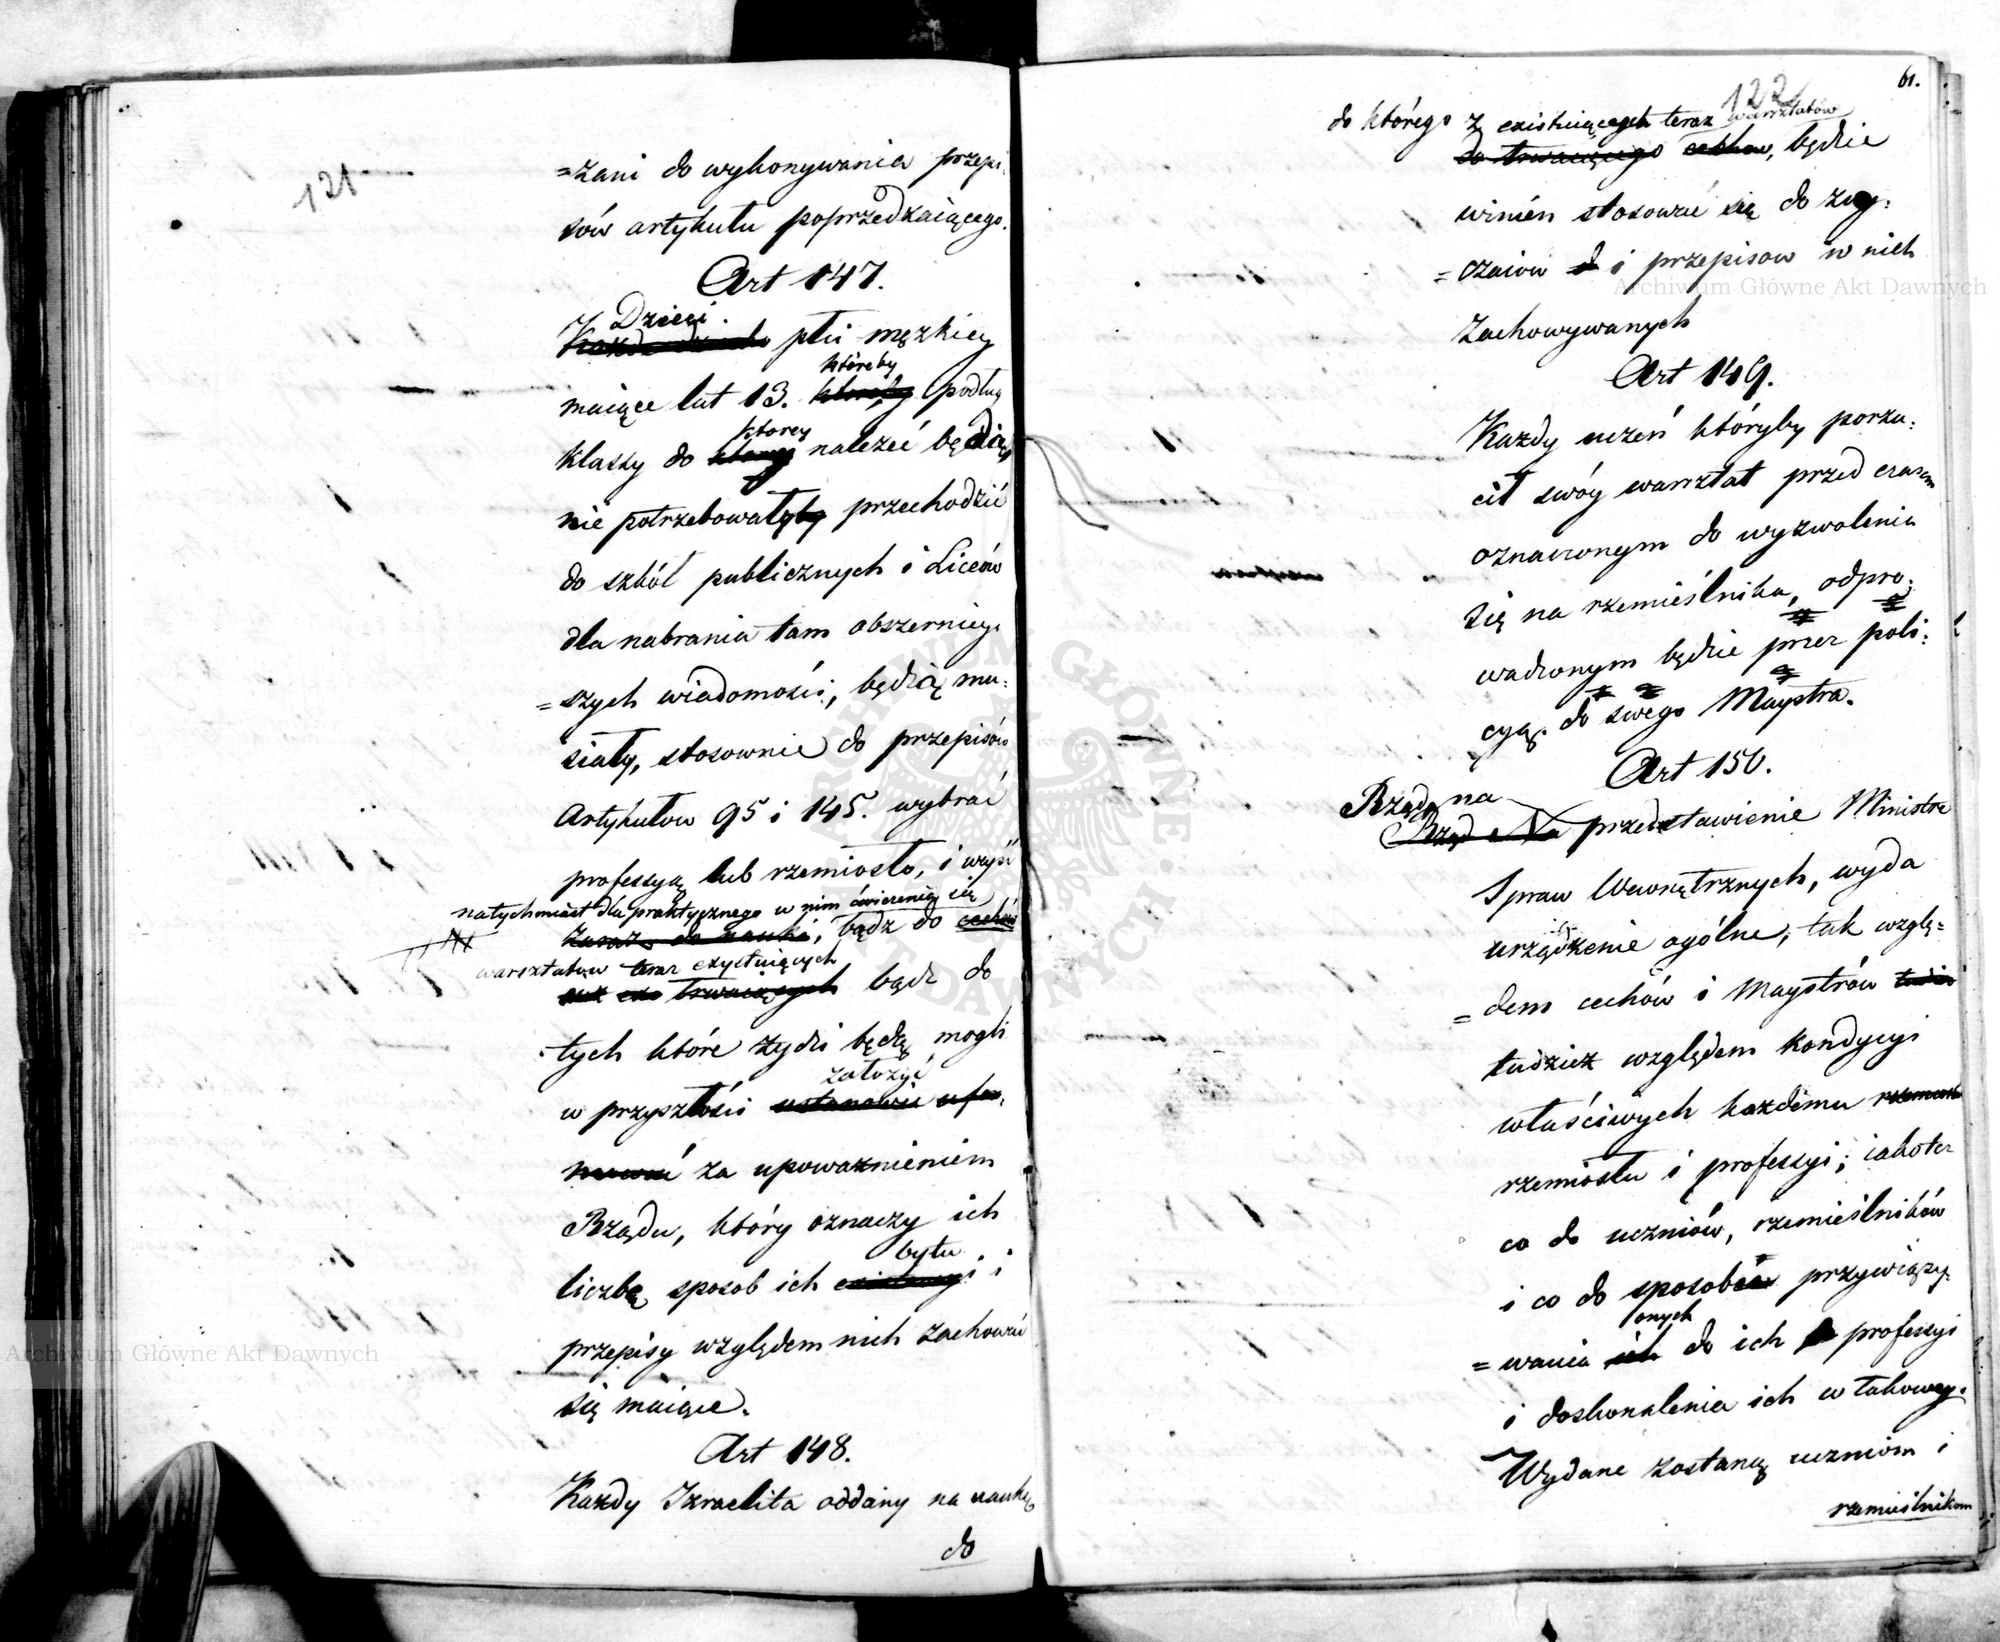 121
=zani do wykonywania przepi:
sów artykułu poprzedzaiącego.
Art 147.
Dzieci.
płci męzkiey
któreby
maiące lat 13. podług
ktorey
klassy do należeć będą,
nie potrzebowały przechodzić
do szkół publicznych i Liceów
dla nabrania tam obszerniey:
=szych wiadomości, będą mu:
siały, stosownie do przepisów
Artykułow 95 i 145. wybrać
professyą lub rzemiosło, i wyjść
natychmiast dla praktycznego w nim ćwiczenia się
zaraz do nauki, bądz do cechów
warsztatow teraz exystuiących
trwaiących bądz do
tych które żydzi będą mogli
założyć
w przyszłości ustanowić
za upoważnieniem
Rządu, który oznaczy ich
bytu
liczbę sposob ich existencyi i
przepisy względem nich zachować
się maiące.
Art 148.
Kazdy Izraelita oddany na naukę
do
122
61.
do którego z existuiących teraz warsztatów
do trwaiącego cechow, będzie
winien stosować się do zwy:
=czaiow i przepisow w nich
zachowywanych
Art 149.
Kazdy uczeń któryby porzu:
cił swóy warsztat przed czasem
oznaczonym do wyzwolenia
się na rzemieślnika, odpro:
wadzonym będzie przez poli:
cyą do swego Maystra.
Art 150.
Rząd na
Rząd Na przedstawienie Ministra
Spraw Wewnętrznych, wyda
urządzenie ogólne, tak wzglę=
=dem cechów i Maystrów
tudzież względem kondycyi
właściwych każdemu
rzemiosłu i professyi; iakoteż
co do uczniów, rzemieślników
i co do sposobu przywiązy:
onych
=wania ich do ich professyi
i doskonalenia ich w takowey.
Wydane zostaną uczniom i
rzemieślnikom
Archiwum Główne Akt Dawnych
Archiwum Główne Akt Dawnych
ARCHIWUM GŁÓWNE AKT DAWNYCH